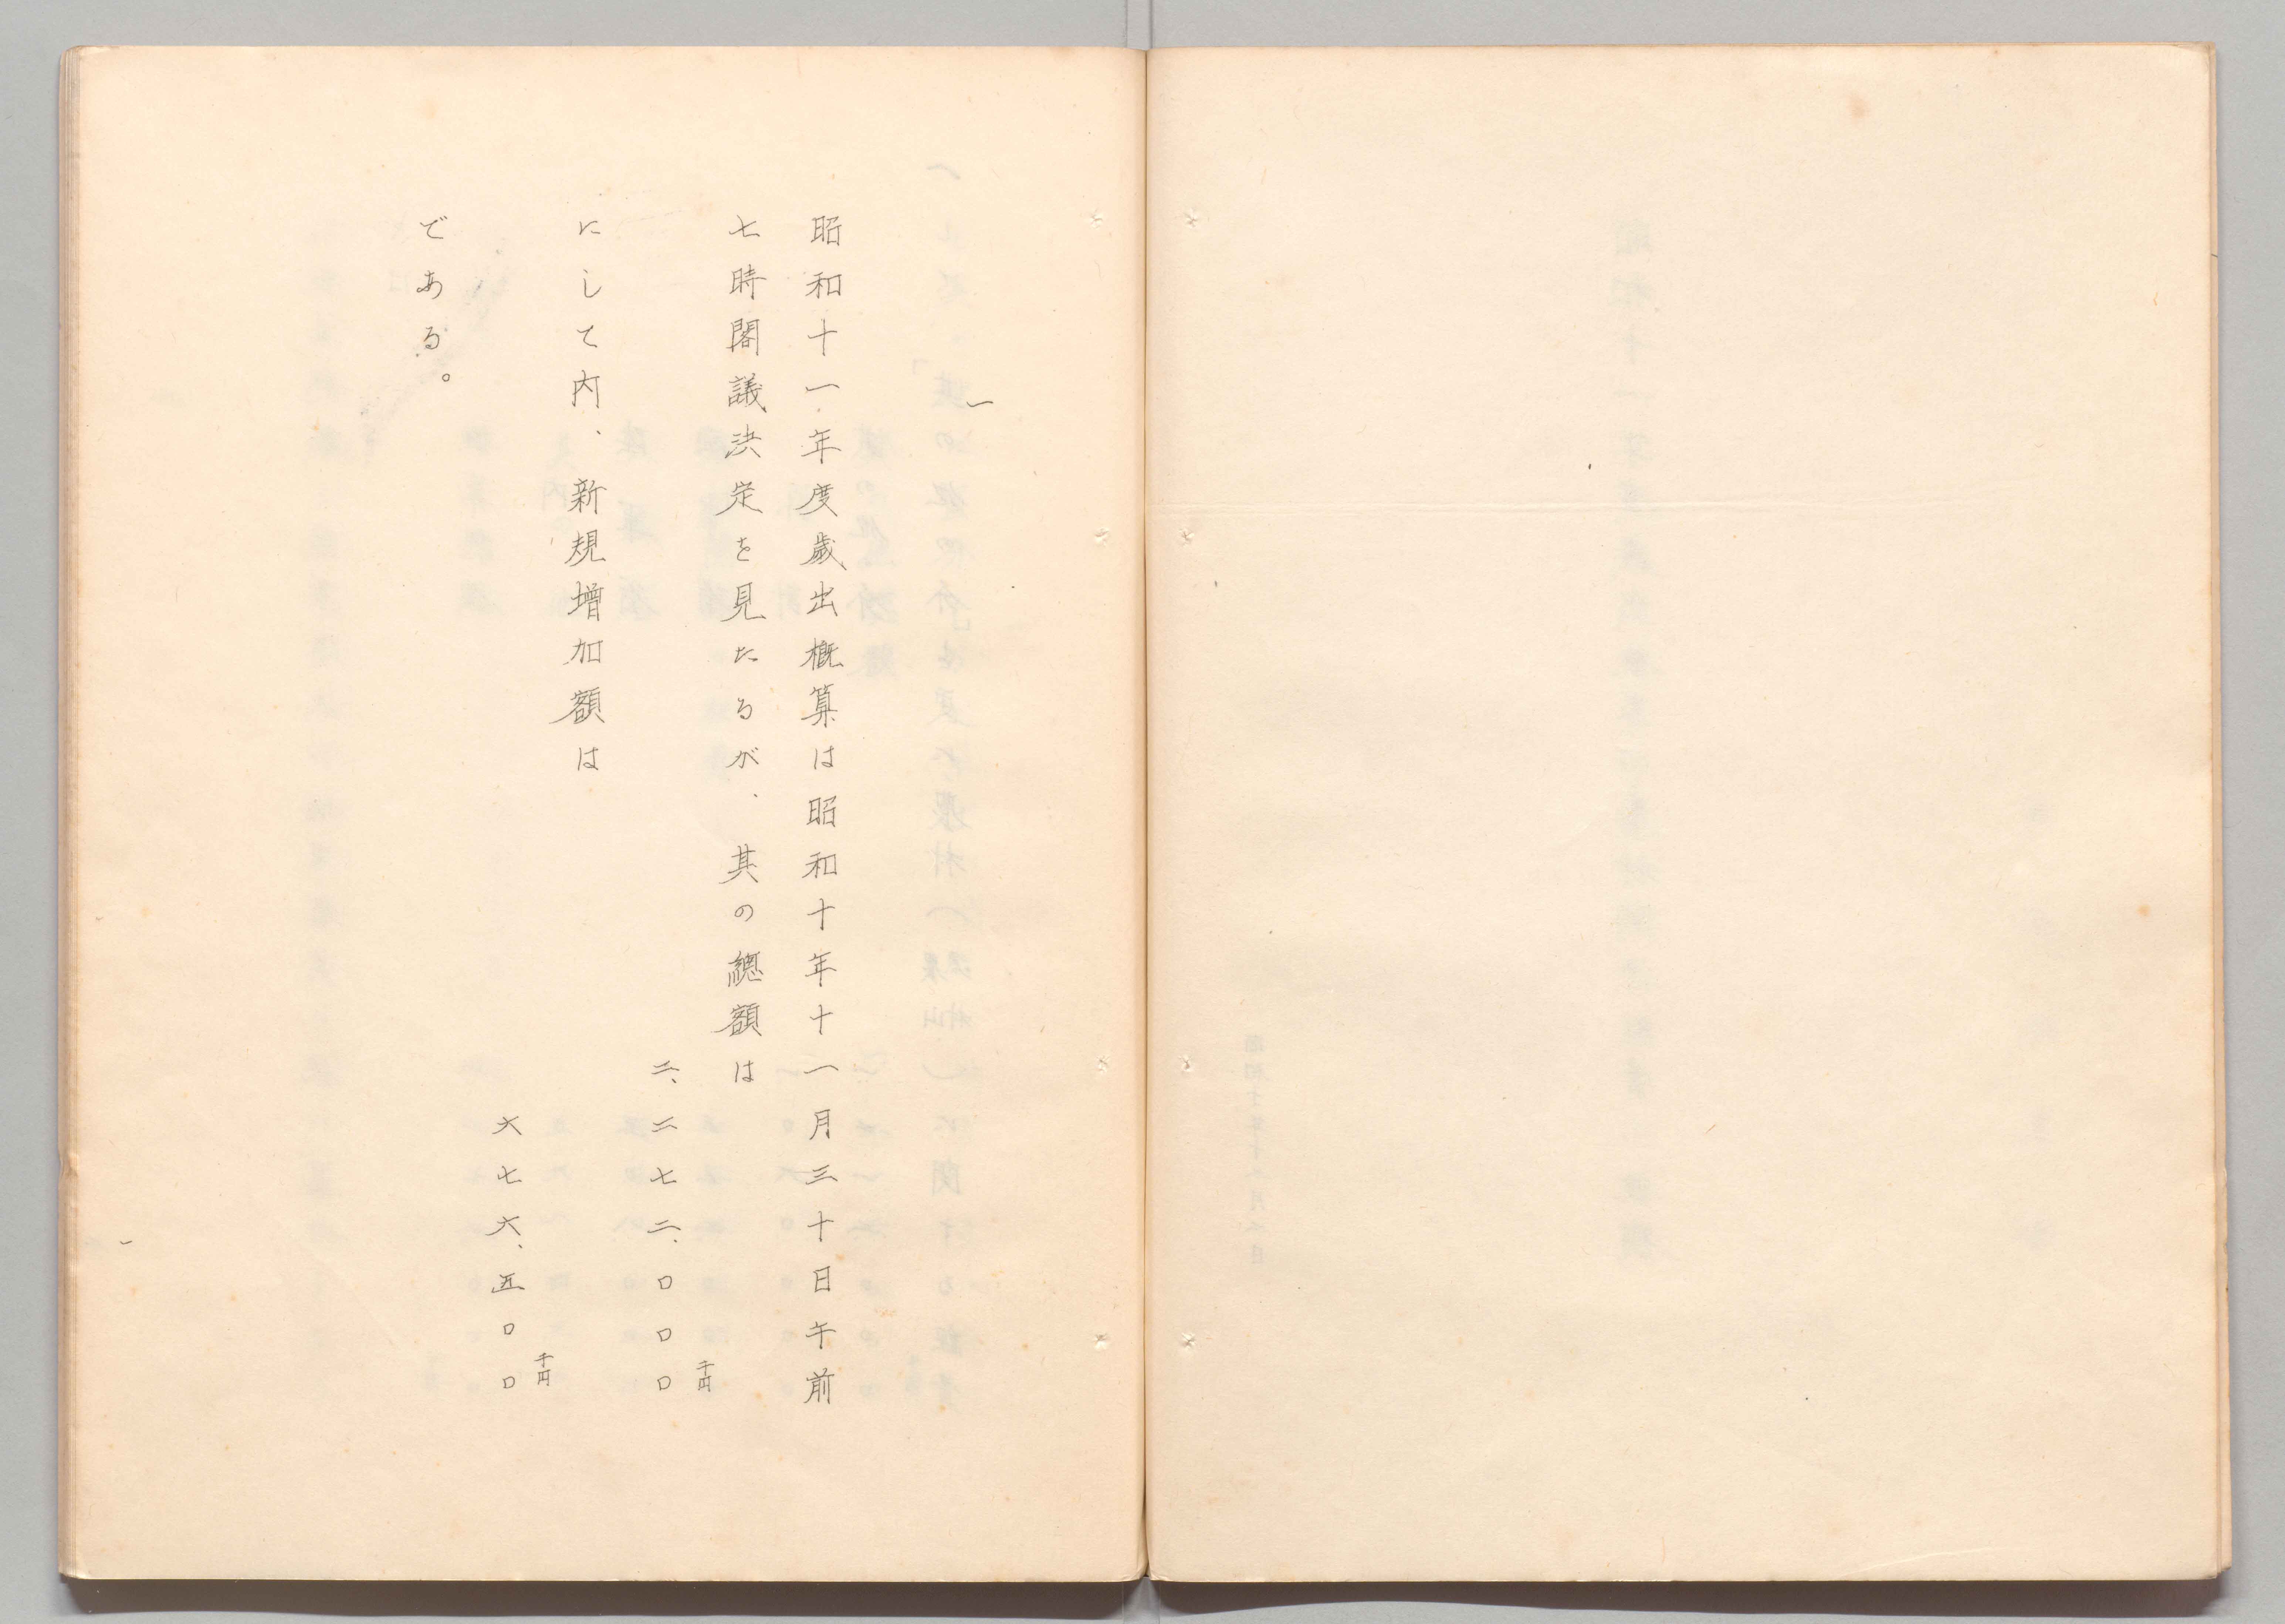 一
昭和十一年度歲出概算は昭和十年十一月三十日午前
七時閣議決定を見たるが、其の總額は
二、二七二、〇〇〇千円
にして内、新規增加額は
六七六、五〇〇千円
である。